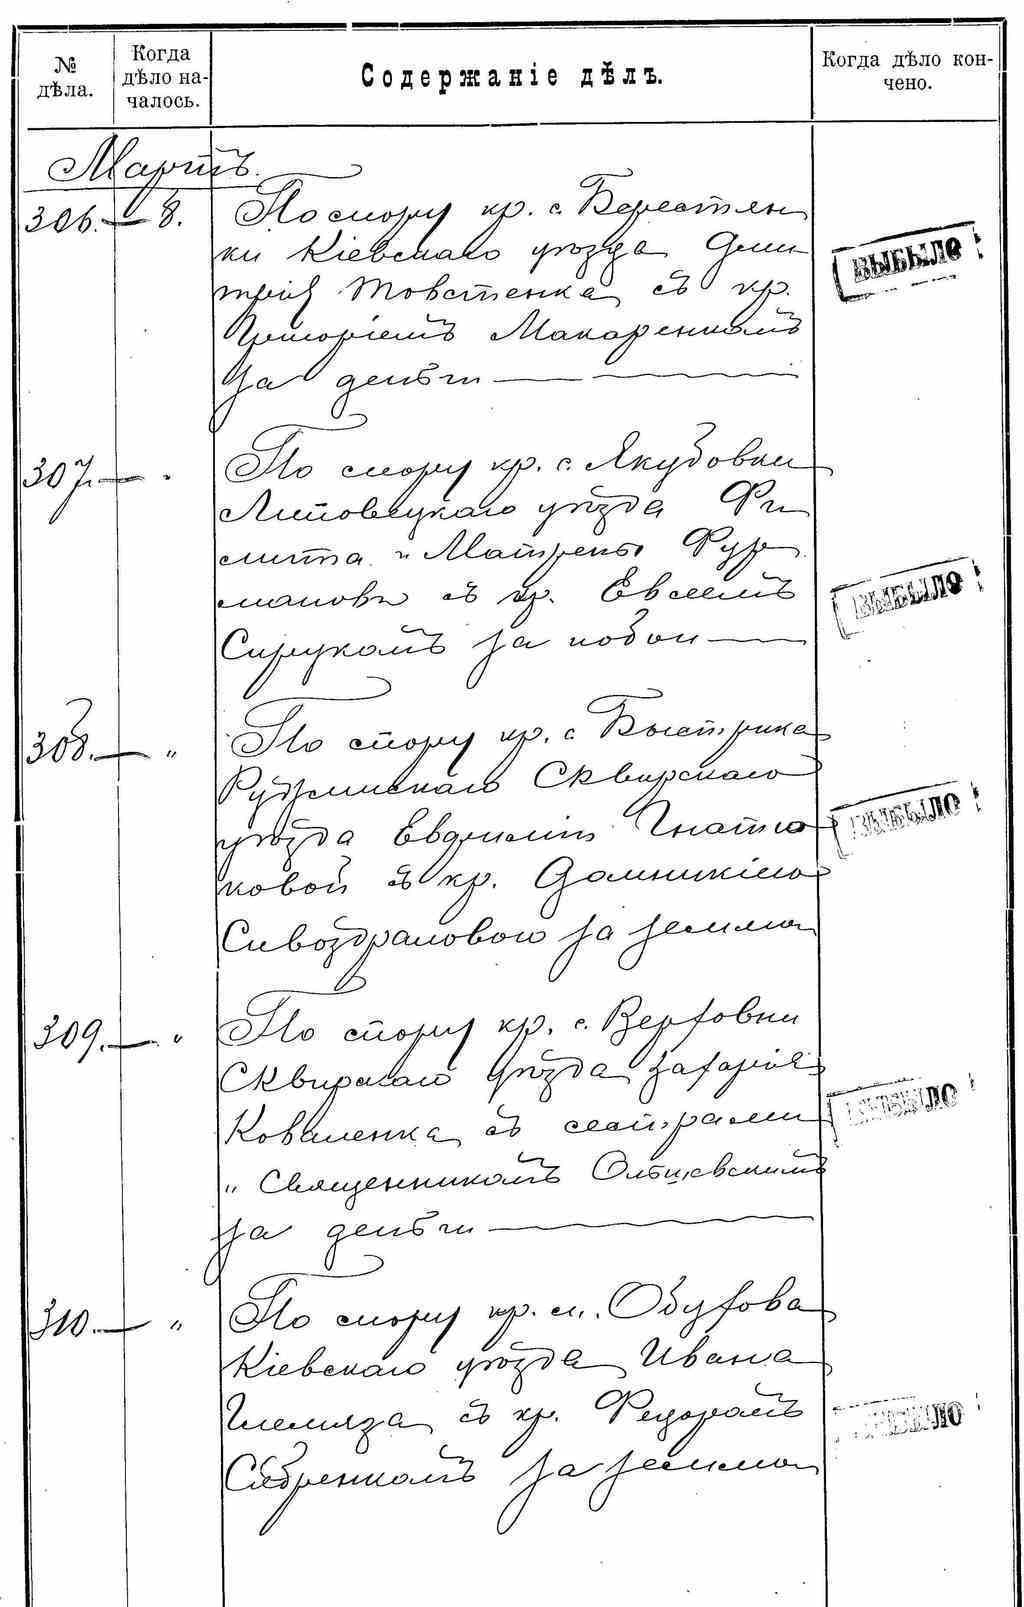 № дѣла.
Когда дѣло началось.
Содержаніе дѣлъ.
Когда дѣло кончено.
Мартъ.
306. — 8. По спору кр. с. Берестян
ки Кіевскаго уѣзда Дми
трія Товстенка съ кр.
Григоріемъ Макаренкомъ
за деньги
ВЫБЫЛО
307. — " По спору кр. с. Якубовки
Липовецкаго уѣзда Фи
липа и Матрены Фур
мановы съ кр. Евсеемъ
за побои
ВЫБЫЛО
308. — " По спору кр. с. Быстрика
Ружинскаго Сквирскаго
уѣзда Евдокіи Гнатю
ковой съ кр. Домникіею
за землю
ВЫБЫЛО
309. — " По спору кр. с. Верховни
Сквирскаго уѣзда Захарія
Коваленка съ сестрами
и Священникомъ
за деньги
ВЫБЫЛО
310. — " По спору кр. м. Обухова
Кіевскаго уѣзда Ивана
Шемяза съ кр. Федоромъ
за землю
ВЫБЫЛО